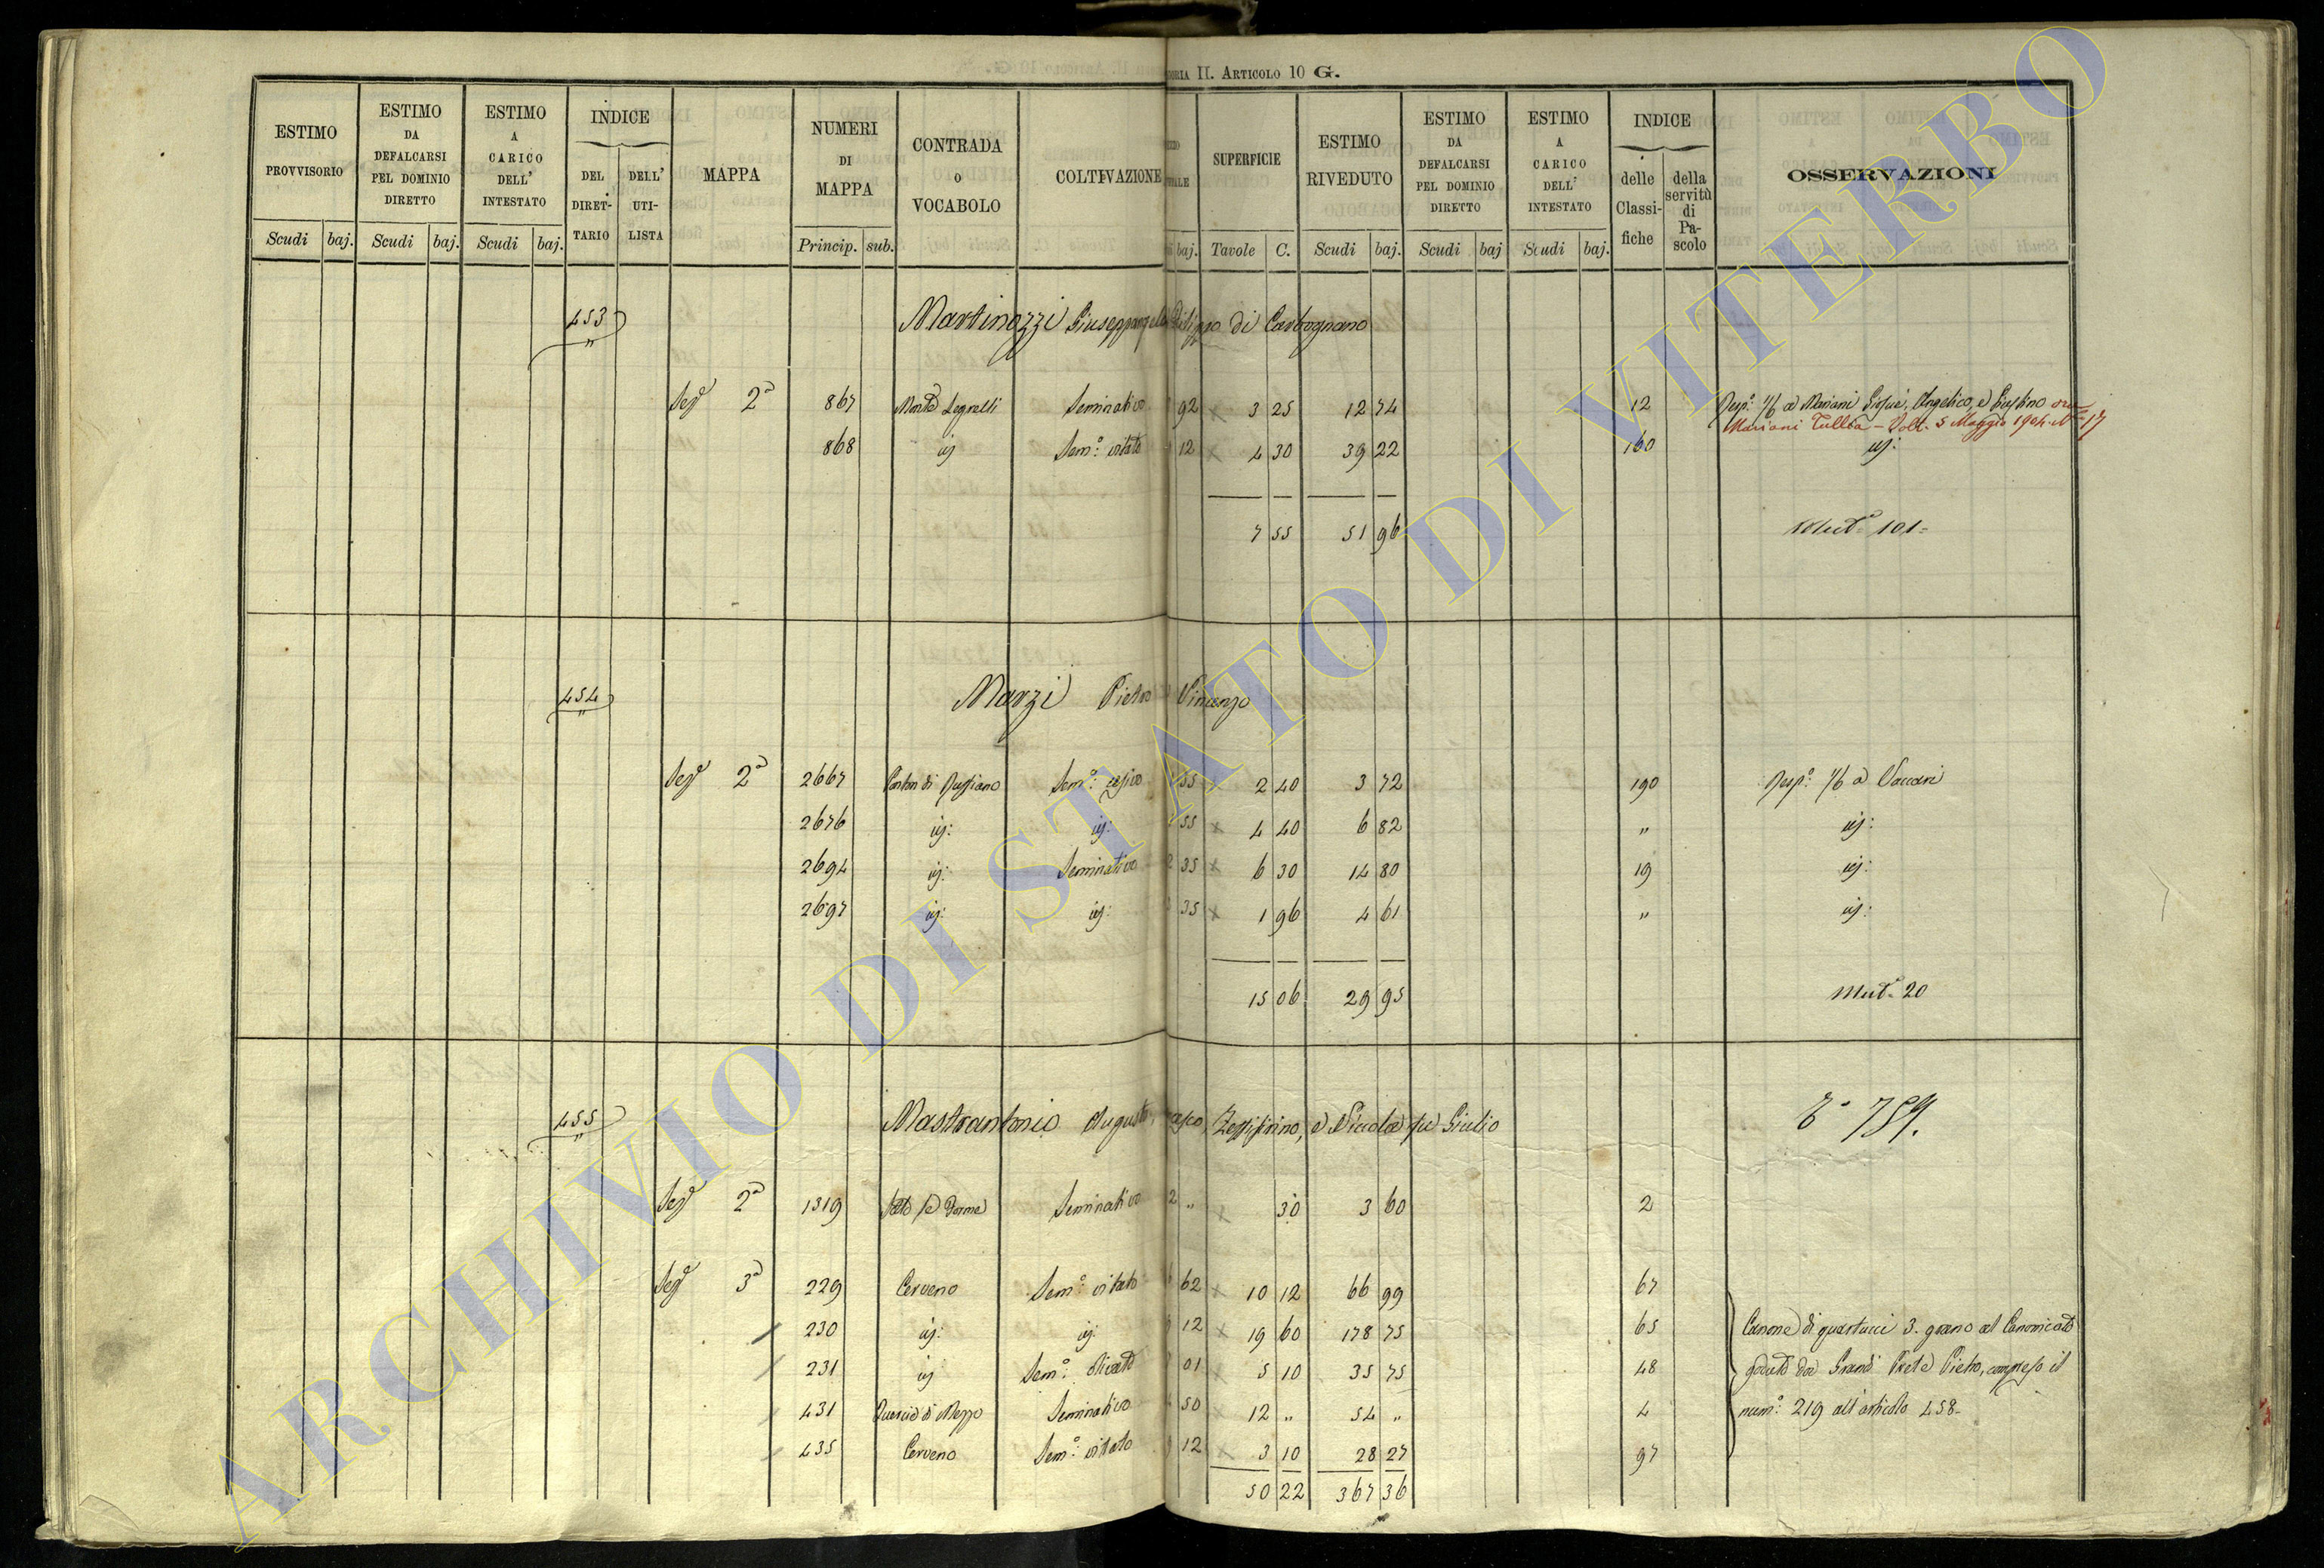 II. Articolo 10 G.
ESTIMO PROVVISORIO
ESTIMO DA DEFALCARSI PEL DOMINIO DIRETTO
ESTIMO A CARICO DELL' INTESTATO
INDICE
DEL DIRET- TARIO
DELL' UTI- LISTA
MAPPA
NUMERI DI MAPPA
CONTRADA O VOCABOLO
COLTIVAZIONE
SUPERFICIE
ESTIMO RIVEDUTO
ESTIMO DA DEFALCARSI PEL DOMINIO DIRETTO
ESTIMO A CARICO DELL' INTESTATO
INDICE
delle Classi- fiche
della servitù di Pa- scolo
OSSERVAZIONI
Scudi baj. Scudi baj. Scudi baj. Princip. sub. baj. Tavole C. Scudi baj. Scudi baj Scudi baj.
453 Martinozzi di Carbognano
Sez.e 2a 867 Seminativo 92 3 25 12 74 12 Resp. 1/6 a Mariani Giosuè, Angelico, e Giustino ora
Mariani Tullia - Volt. 5 Maggio 1904 N° 17
868 Sem.o vitato 12 4 30 39 22 160
7 55 51 96 Mut.e 101
454 Marzi Pietro Vincenzo
Sez.e 2a 2667 Sem.o 55 2 40 3 72 190 Resp. 1/6 a Vaccari
2676 55 4 40 6 82 "
2694 Seminativo 35 6 30 14 80 19
2697 35 1 96 4 61 "
15 06 29 95 Mut.e 20
455 Mastrantonio Augusto, Zeffirino, e Nicola fu Giulio 789.
Sez.e 2a 1319 Seminativo 2 " 30 3 60 2
Sez.e 3a 229 Cerveno Sem.o vitato 62 10 12 66 99 67
230 12 19 60 178 75 65 Canone di quartucci 3. grano al Canonicato
231 Sem.o olivato 01 5 10 35 75 48 goduto da Grandi Prete Pietro, compreso il
431 Quercia di Mezzo Seminativo 50 12 " 54 " 4 num.o 219 all'articolo 458.
435 Cerveno Sem.o vitato 12 3 10 28 27 97
50 22 367 36
ARCHIVIO DI STATO DI VITERBO